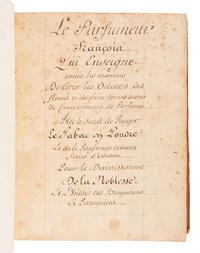 Le Parfumeur
François
Qui Enseigne
toutes les manieres
De tirer les Odeurs des
fleurs et de faire toutes sortes
de compositions de Parfums
Avec le Secret de Purger
Le Tabac en Poudre
Et de le Parfumer de toutes
sortes d'odeurs
Pour le Divertissement
De la Noblesse
Et l'Utilité des Baigneurs
et Perruquiers